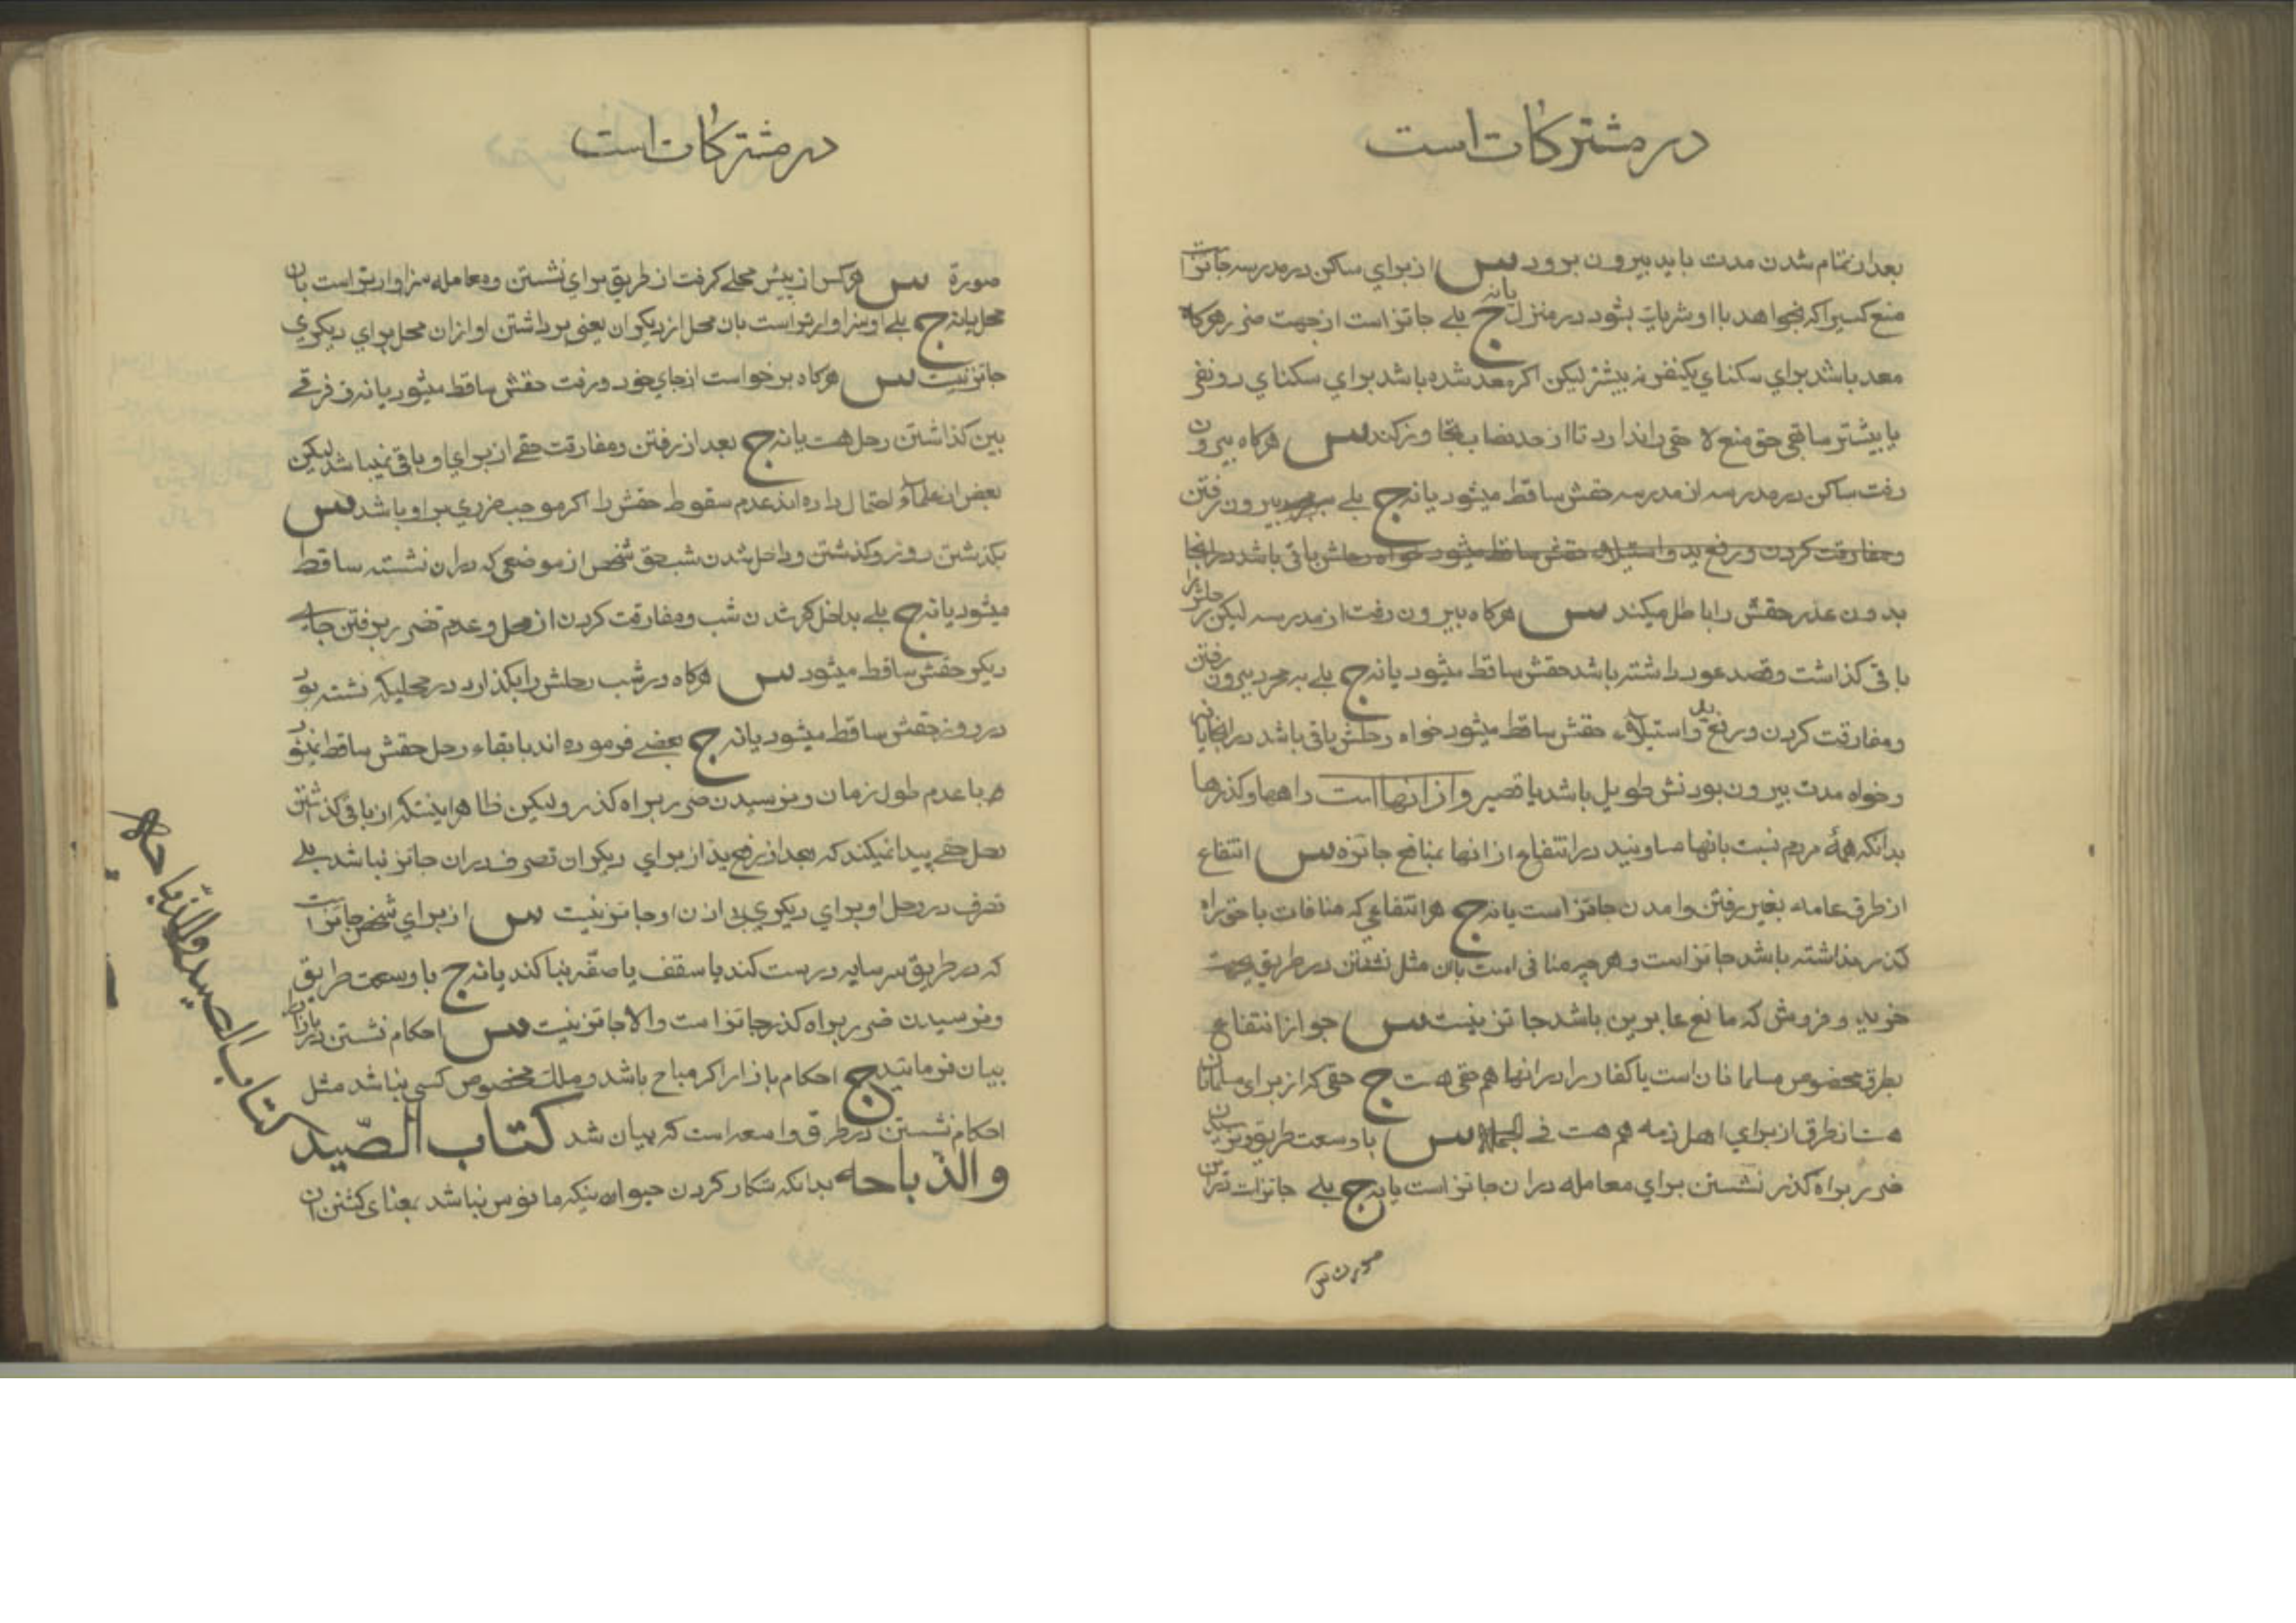 در مشتركات است
بعد از تمام شدن مدت بايد بيرون برود س از براي ساكن در مدرسه جائز است
منع كسيرا كه بخواهد با او شريك بشود در منزل يا نه ج بلے جائز است از جهت ضرر هركاه
معد باشد براي سكناي يكنفر نه بيشتر ليكن اكر معد شده باشد براي سكناي دو نفر
يا بيشتر سابقى حق منع لا حقى را ندارد تا از حد نصاب تجاوز كند س هركاه بيرون
رفت ساكن در مدرسه از مدرسه حقش ساقط ميشود يا نه ج بلے بيرون رفتن
ومفارقت كردن و رفع يد و استيلاء حقش ساقط ميشود خواه رحلش باقى باشد در انجا
بدون عذر حقش را باطل ميكند س هركاه بيرون رفت از مدرسه ليكن رحلش را
باقى كذاشت و قصد عود داشته باشد حقش ساقط ميشود يا نه ج بلے به مجرد بيرون رفتن
ومفارقت كردن و رفع يد و استيلاء حقش ساقط ميشود خواه رحلش باقى باشد در انجا يا نه
و خواه مدت بيرون بودنش طويل باشد يا قصير و از انها است راهها و كذرها
بدانكه همهٔ مردم نسبت بانها مساويند در انتفاع از انها بمنافع جائزه س انتفاع
از طرق عامه بغير رفتن و امدن جائز است يا نه ج هر انتفاعي كه منافات با حق راه
كذر نداشته باشد جائز است و هر چه منافى است بان مثل نشستن در طريق بجهت
خريد و فروش كه مانع عابرين باشد جائز نيست س جواز انتفاع
بطرق مخصوص مسلمانان است يا كفار را در انها هم حقى هست ج حقى كه از براى مسلمانان
هست از طرق از براي اهل ذمه هم هست في الجمله س با وسعت طريق و نرسيدن
ضرر براه كذر نشستن براي معامله در ان جائز است يا نه ج بلے جائز است در اين
صورت س
در مشتركات است
صورة س هركس از پيش محلے كرفت از طريق براي نشستن و معامله سزاوارتر است بان
محل يا نه ج بلے او سزاوارتر است بان محل از ديكران يعنى برداشتن او از ان محل براي ديكري
جائز نيست س هركاه برخواست از جاي خود و رفت حقش ساقط ميشود يا نه و فرقے
بين كذاشتن رحل هست يا نه ج بعد از رفتن و مفارقت حقے از براي او باقى نميباشد ليكن
بعض از علماء احتمال داده اند عدم سقوط حقش را اكر موجب ضرري بر او باشد س
بكذشتن روز و كذشتن و داخل شدن شب حق شخص از موضعى كه در ان نشسته ساقط
ميشود يا نه ج بلے بداخل شدن شب و مفارقت كردن از محل و عدم تضرر برفتن جاي
ديكر حقش ساقط ميشود س هركاه در شب رحلش را بكذارد در محليكه نشسته بود
در روز حقش ساقط ميشود يا نه ج بعضے فرموده اند با بقاء رحل حقش ساقط نميشود
با عدم طول زمان و نرسيدن ضرر براه كذر وليكن ظاهر اينستكه از باقى كذاشتن
رحل حقے پيدا نميكند كه بعد از رفع يد از براي ديكران تصرف در ان جائز نباشد بلے
تصرف در رحل او براي ديكري بي اذن او جائز نيست س از براي شخص جائز است
كه در طريق سر سايه درست كند يا سقف يا صفّه بنا كند يا نه ج با وسعت طريق
و نرسيدن ضرر براه كذر جائز است والا جائز نيست س احكام نشستن در بازار را
بيان فرمائيد ج احكام بازار اكر مباح باشد و ملك مخصوص كسى نباشد مثل
احكام نشستن در طرق واسعه است كه بيان شد كتاب الصّيد
والذّباحه بدانكه شكار كردن حيوانيكه مانوس نباشد بمعناى كشتن ان
كتاب الصيد والذّباحه